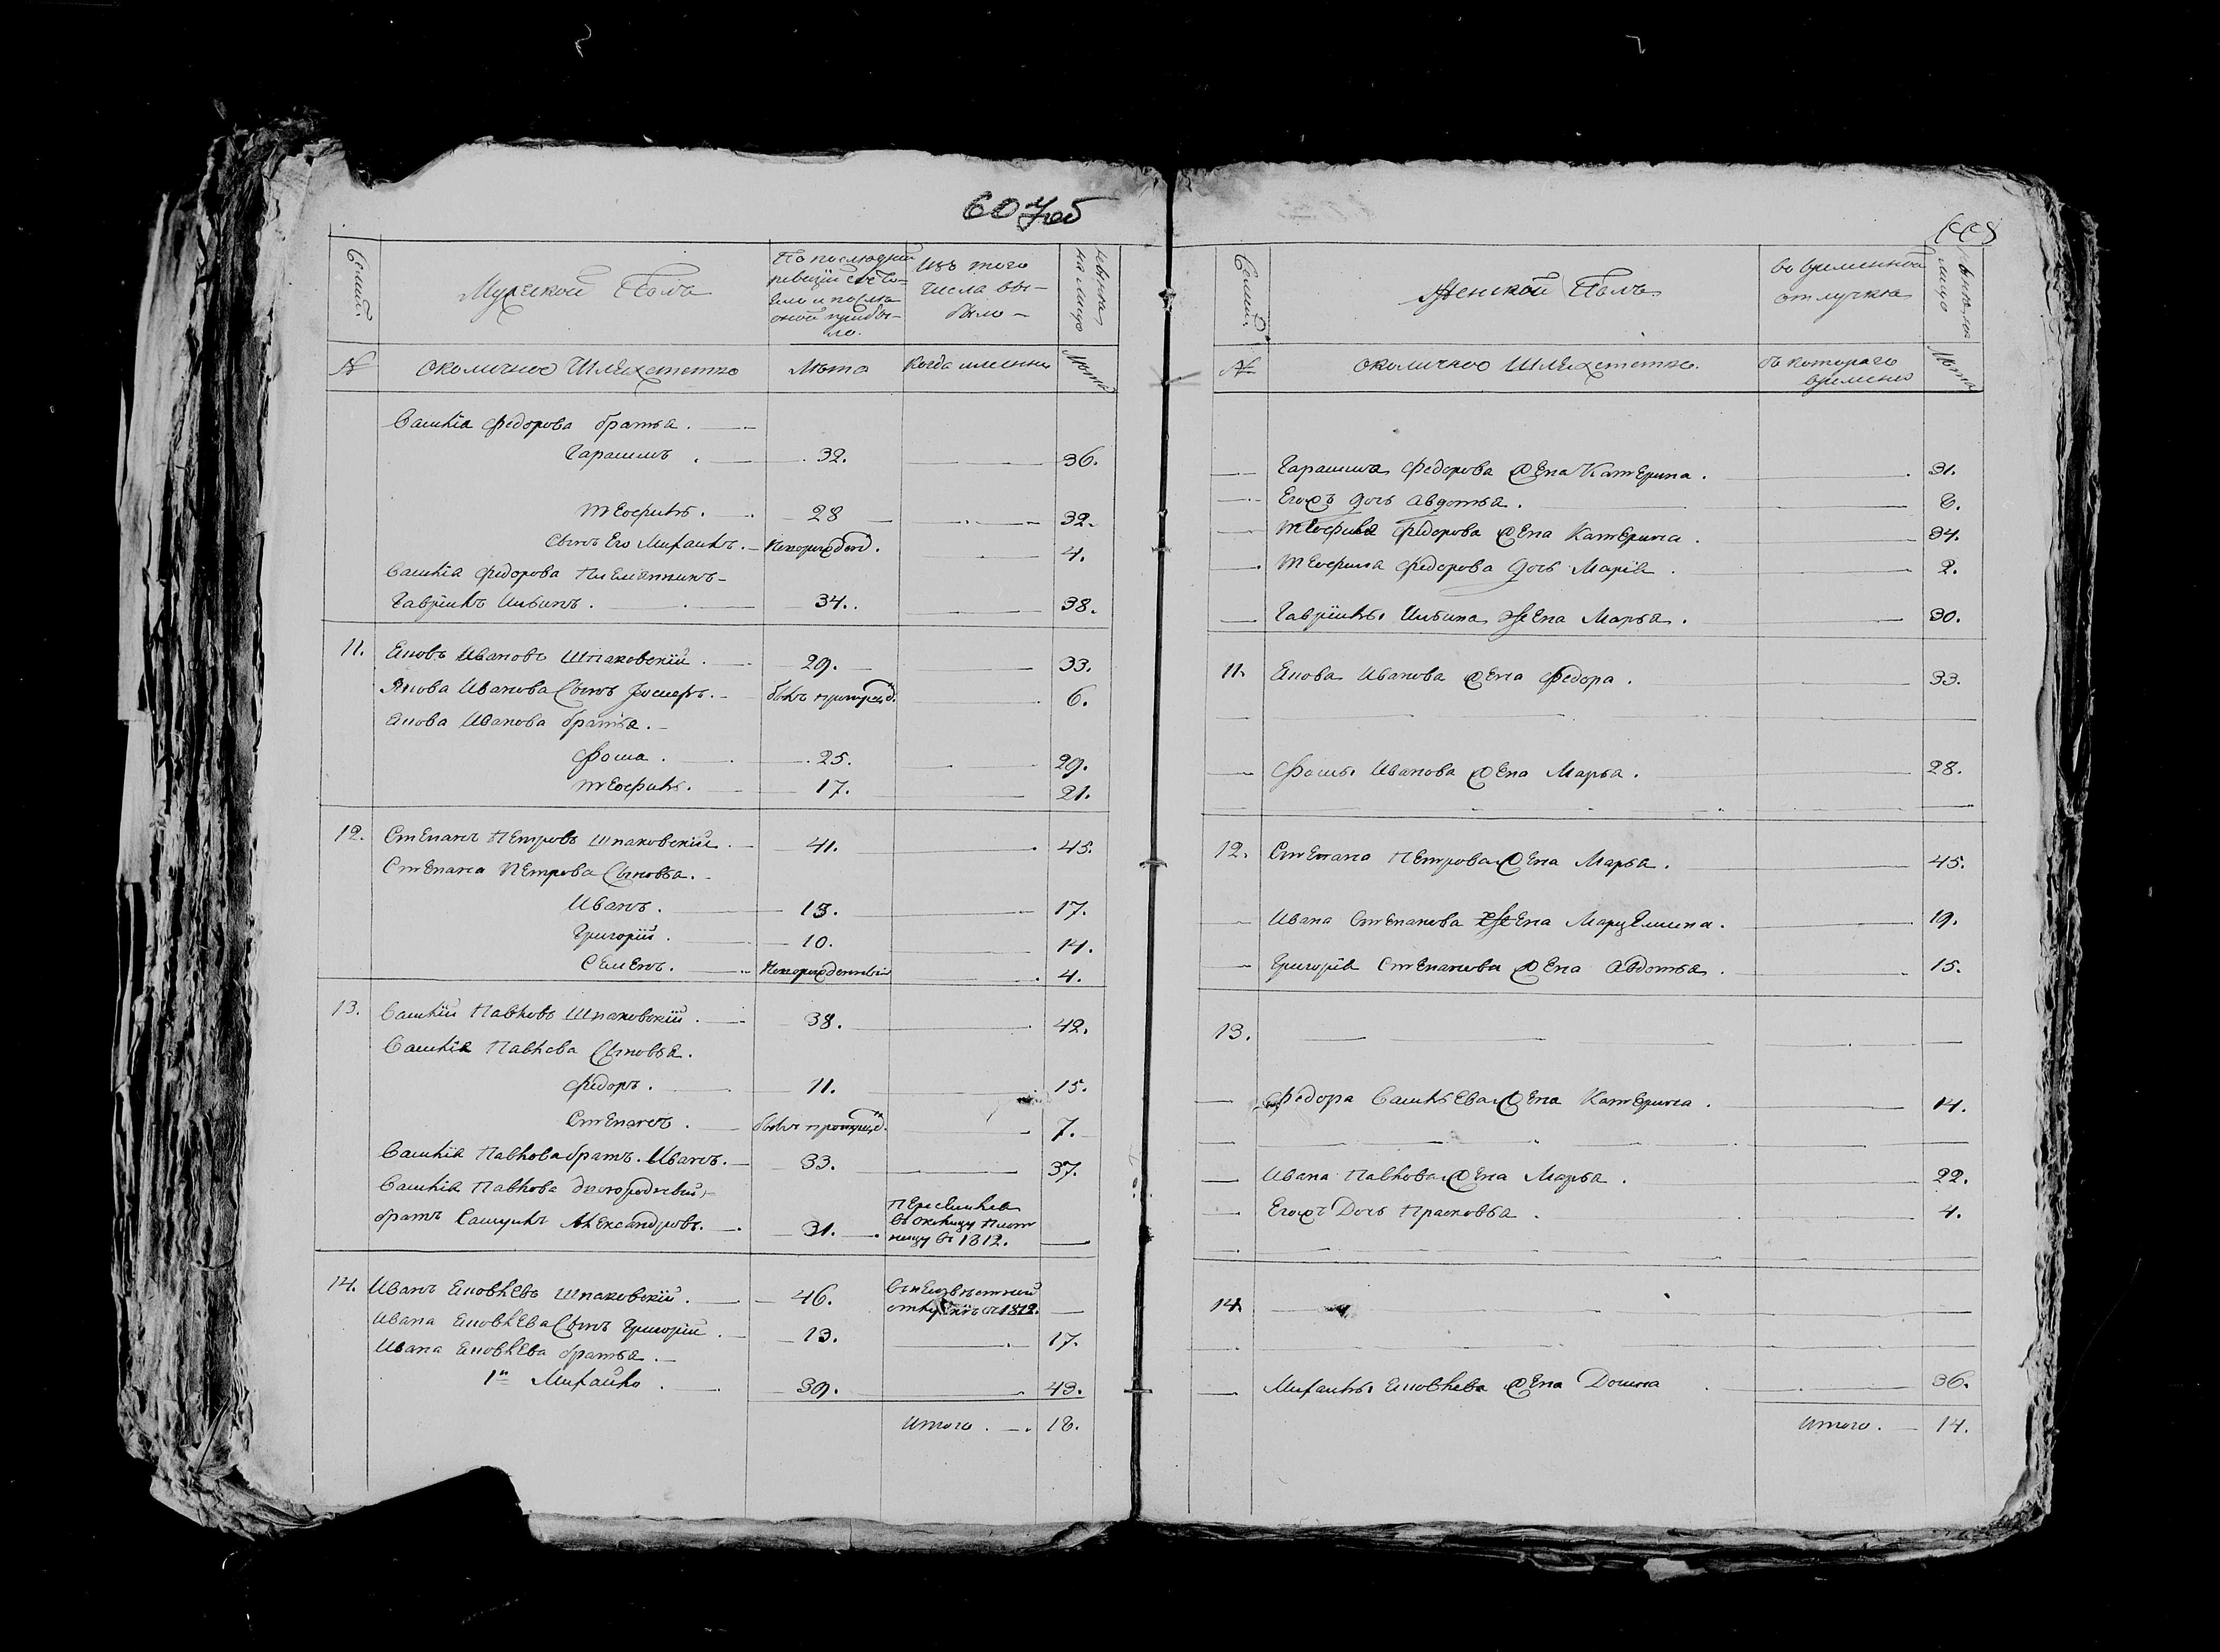 607об
Семьи.
Мужеской Полъ
По последней
ревизіи состо-
яло и после
оной прибы-
ло.
Изъ того
числа вы-
было -
ныне на
лицо
№
околичное Шляхетство
Лета
Когда именно
Лета
Василія Федорова братья.
Гарасимъ . 32. 36.
Теофилъ . 28 32.
Сынъ Его Михаилъ. Новорожден. 4.
Василія Федорова Племянникъ
Гаврiилъ Ильинъ . 34. 38.
11. Яновъ Ивановъ Шпаковскій . 29. 33.
Янова Иванова Сынъ былъ пропущ. 6.
Янова Иванова братья.
Фома . 25. 29.
Теофилъ. 17. 21.
12. Степанъ Петровъ Шпаковскій . 41. 45.
Степана Петрова Сыновья.
Иванъ . 13. 17.
Григорій . 10. 14.
Семенъ . Новорожденный 4.
13. Василій Павловъ Шпаковскій . 38. 42.
Василія Павлова Сыновья .
Федоръ . 11. 15.
Степанъ . былъ пропущ. 7.
Василія Павлова братъ. Иванъ. 33. 37.
Василія Павлова двоюродный
братъ Самуилъ Александровъ. 31.
Переселился
въ околицу
в 1812.
14. Иванъ Яковлевъ Шпаковскій . 46.
отлучкѣ с 1812.
Ивана Яковлева Сынъ Григорій . 13. 17.
Ивана Яковлева братья .
1й Михайло . 39. 43.
Итого . 18.
Семьи.
Женской Полъ.
во временной
отлучке
ныне на
лицо
№
околичное Шляхетство.
съ котораго
времени
Лета
Гарасима Федорова жена Катерина . 31.
Егожъ дочь Авдотья . 6.
Теофила Федорова жена Катерина . 34.
Теофила Федорова дочь Марія . 2.
Гавріилы Ильина жена Марья . 30.
11. Янова Иванова жена Федора . 33.
Фомы Иванова жена Марья . 28.
12. Степана Петрова жена Марья . 45.
Ивана Степанова жена Марцелина . 19.
Григорія Степанова жена Авдотья . 15.
13.
Федора Васильева жена Катерина . 14.
Ивана Павлова жена Марья . 22.
Егожъ Дочь Прасковья . 4.
14.
Михаилы Яковлева жена Домна 36.
Итого . 14.